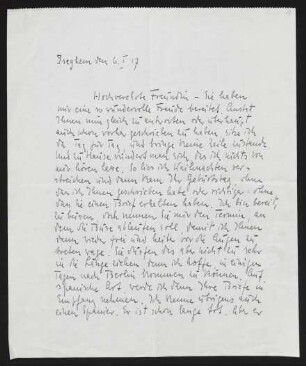 Breghem den 6. I 17
Hochverehrte Freundin – Sie haben
mir eine so wundervolle Freude bereitet. Anstatt
Ihnen nun gleich zu antworten oder überhaupt
auch schon vorher geschrieben zu haben, sitze ich
da Tag für Tag, und bringe keine Zeile zustande
und zu Hause wundert man sich, dass ich nichts von
mir hören lasse. So liess ich Weihnachten ver-
streichen und dann Ihren Geburtstag, ohne
dass ich Ihnen geschrieben habe oder richtiger – ohne
dass Sie einen Brief erhalten haben. Ich bin bereit
zu büssen und nennen Sie mir den Termin, an
dem die Busse ablaufen soll damit ich Ihnen
dann wieder frei und heiter vor die Augen zu
treten wage. Sie dürfen das aber nicht zu sehr
in die Länge ziehen denn ich hoffe in einigen
Tagen nach Berlin kommen zu können. Auf
spanische Art werde ich dann Ihre Briefe in
Empfang nehmen. Ich kenne übrigens auch
einen Spanier. Er ist schon lange tot. Aber er